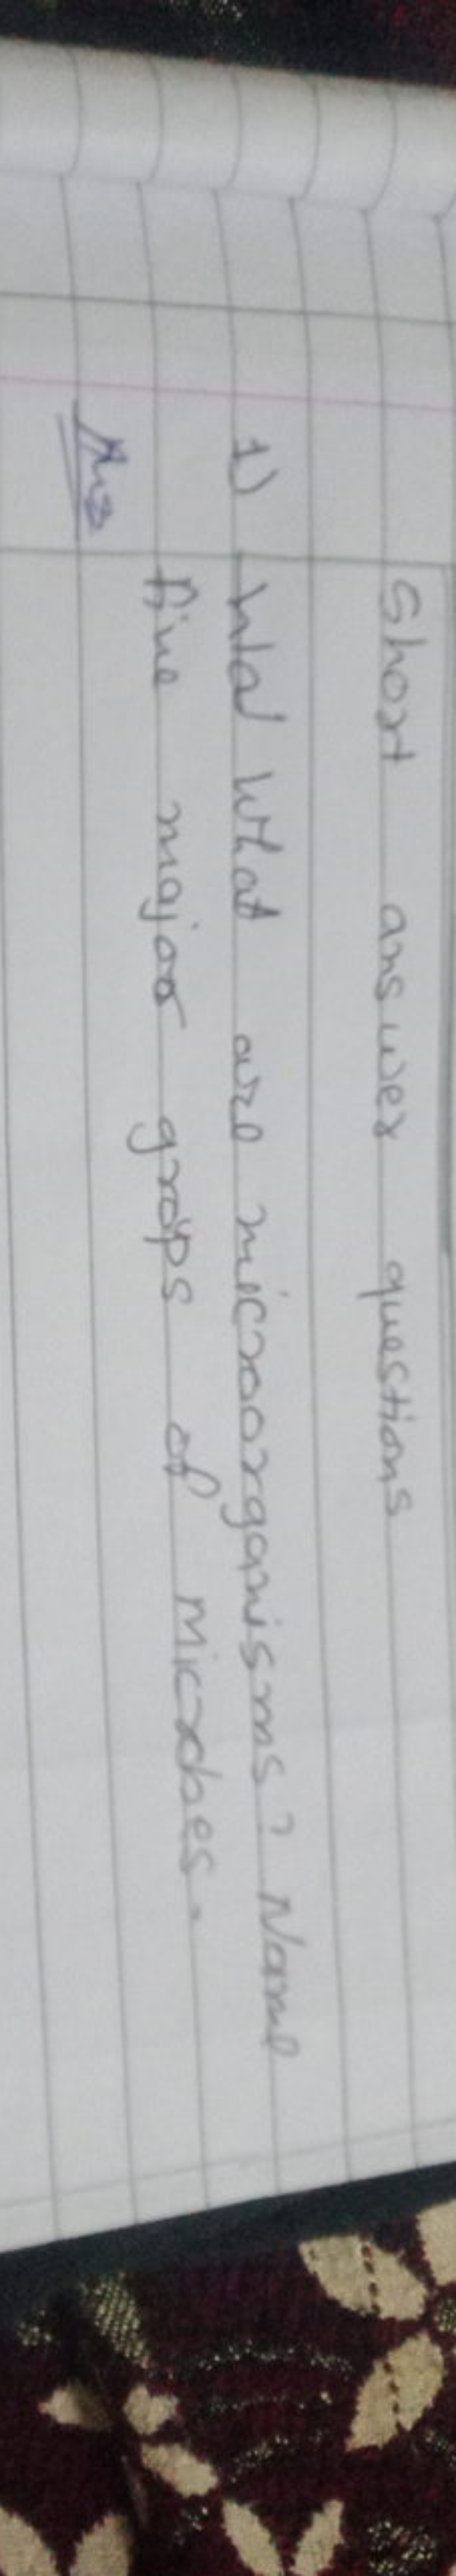 Short answer questions
1) What are microorganisms? Name
five major groups of Microbes.
Ans